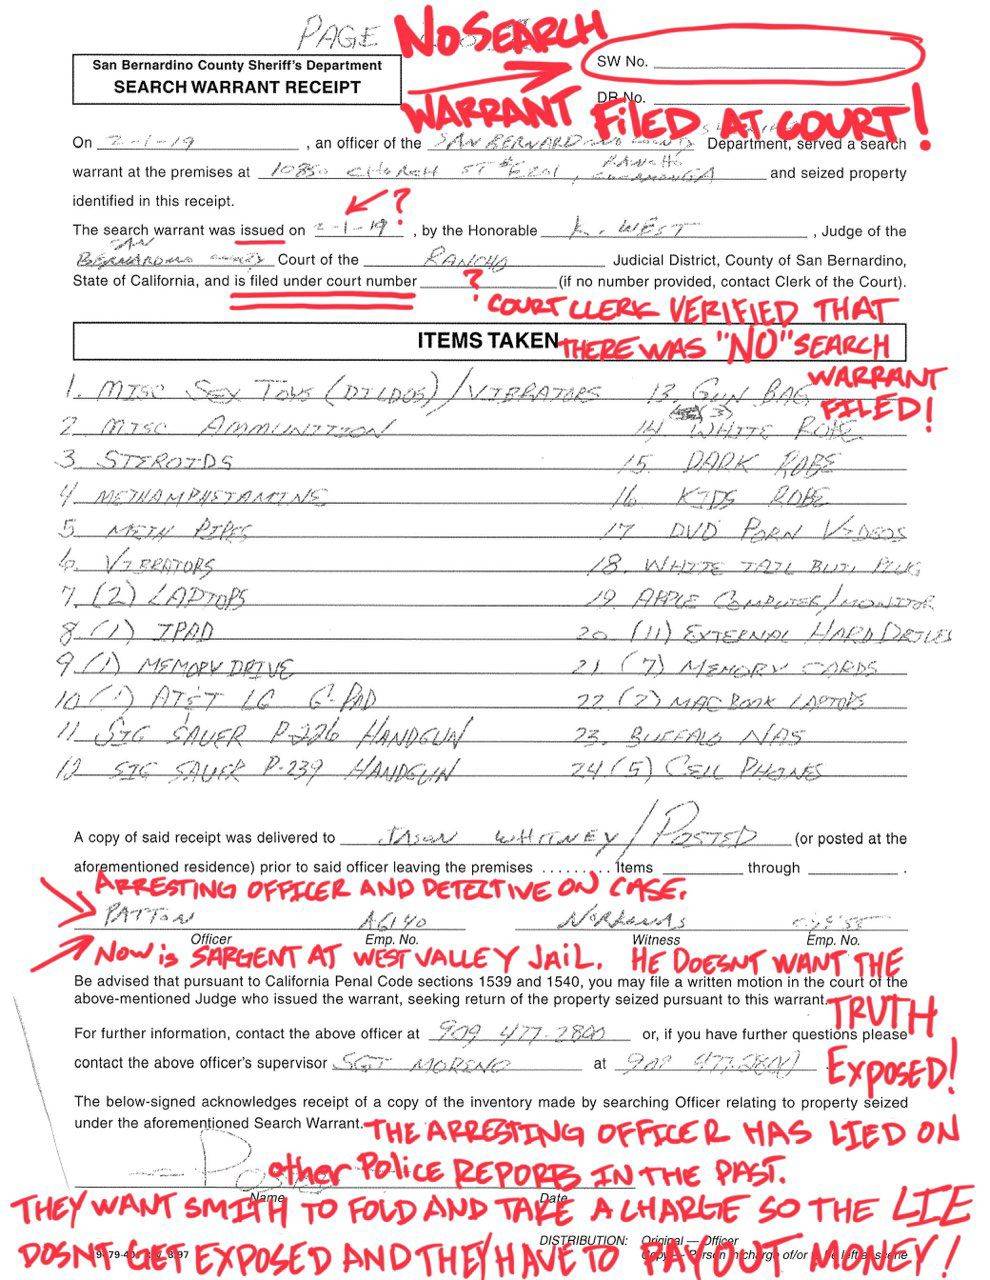 PAGE
NO SEARCH
SW No.
San Bernardino County Sheriff's Department
SEARCH WARRANT RECEIPT
WARRANT FILED AT COURT!
DR No.
On 2-1-19 , an officer of the SAN BERNARDINO COUNTY Department, served a search
warrant at the premises at 10850 CHURCH ST #E201, RANCHO CUCAMONGA and seized property
identified in this receipt.
?
The search warrant was issued on 2-1-19 , by the Honorable K. WEST , Judge of the
SAN BERNARDINO COUNTY Court of the RANCHO Judicial District, County of San Bernardino,
State of California, and is filed under court number ? (if no number provided, contact Clerk of the Court).
COURT CLERK VERIFIED THAT
ITEMS TAKEN THERE WAS "NO" SEARCH
WARRANT
FILED!
1. MISC SEX TOYS (DILDOS)/VIBRATORS 13. GUN BAG
2. MISC AMMUNITION 14. (3) WHITE ROBE
3 STEROIDS 15. DARK ROBE
4 METHAMPHETAMINE 16 KIDS ROBE
5 METH PIPES 17 DVD PORN VIDEOS
6. VIBRATORS 18. WHITE TAIL BUTT PLUG
7. (2) LAPTOPS 19 APPLE COMPUTER/MONITOR
8 (1) IPAD 20 (11) EXTERNAL HARD DRIVES
9 (1) MEMORY DRIVE 21 (7) MEMORY CARDS
10 (1) AT&T LG G-PAD 22 (2) MACBOOK LAPTOPS
11 SIG SAUER P-226 HANDGUN 23. BUFFALO NAS
12 SIG SAUER P-239 HANDGUN 24 (5) CELL PHONES
A copy of said receipt was delivered to JASON WHITNEY/POSTED (or posted at the
aforementioned residence) prior to said officer leaving the premises . . . . . . . . . Items through .
ARRESTING OFFICER AND DETECTIVE ON CASE.
PATTON A6140
Officer Emp. No. Witness Emp. No.
NOW is SARGENT AT WEST VALLEY JAIL. HE DOESNT WANT THE
Be advised that pursuant to California Penal Code sections 1539 and 1540, you may file a written motion in the court of the
above-mentioned Judge who issued the warrant, seeking return of the property seized pursuant to this warrant.
TRUTH
For further information, contact the above officer at 909 477-2800 or, if you have further questions please
contact the above officer's supervisor SGT MORENO at 909 477-2800 .
EXPOSED!
The below-signed acknowledges receipt of a copy of the inventory made by searching Officer relating to property seized
under the aforementioned Search Warrant.
THE ARRESTING OFFICER HAS LIED ON
other POLICE REPORTS IN THE PAST.
Name Date
THEY WANT SMITH TO FOLD AND TAKE A CHARGE SO THE LIE
DISTRIBUTION: Original — Officer
DOSNT GET EXPOSED AND THEY HAVE TO PAY OUT MONEY!